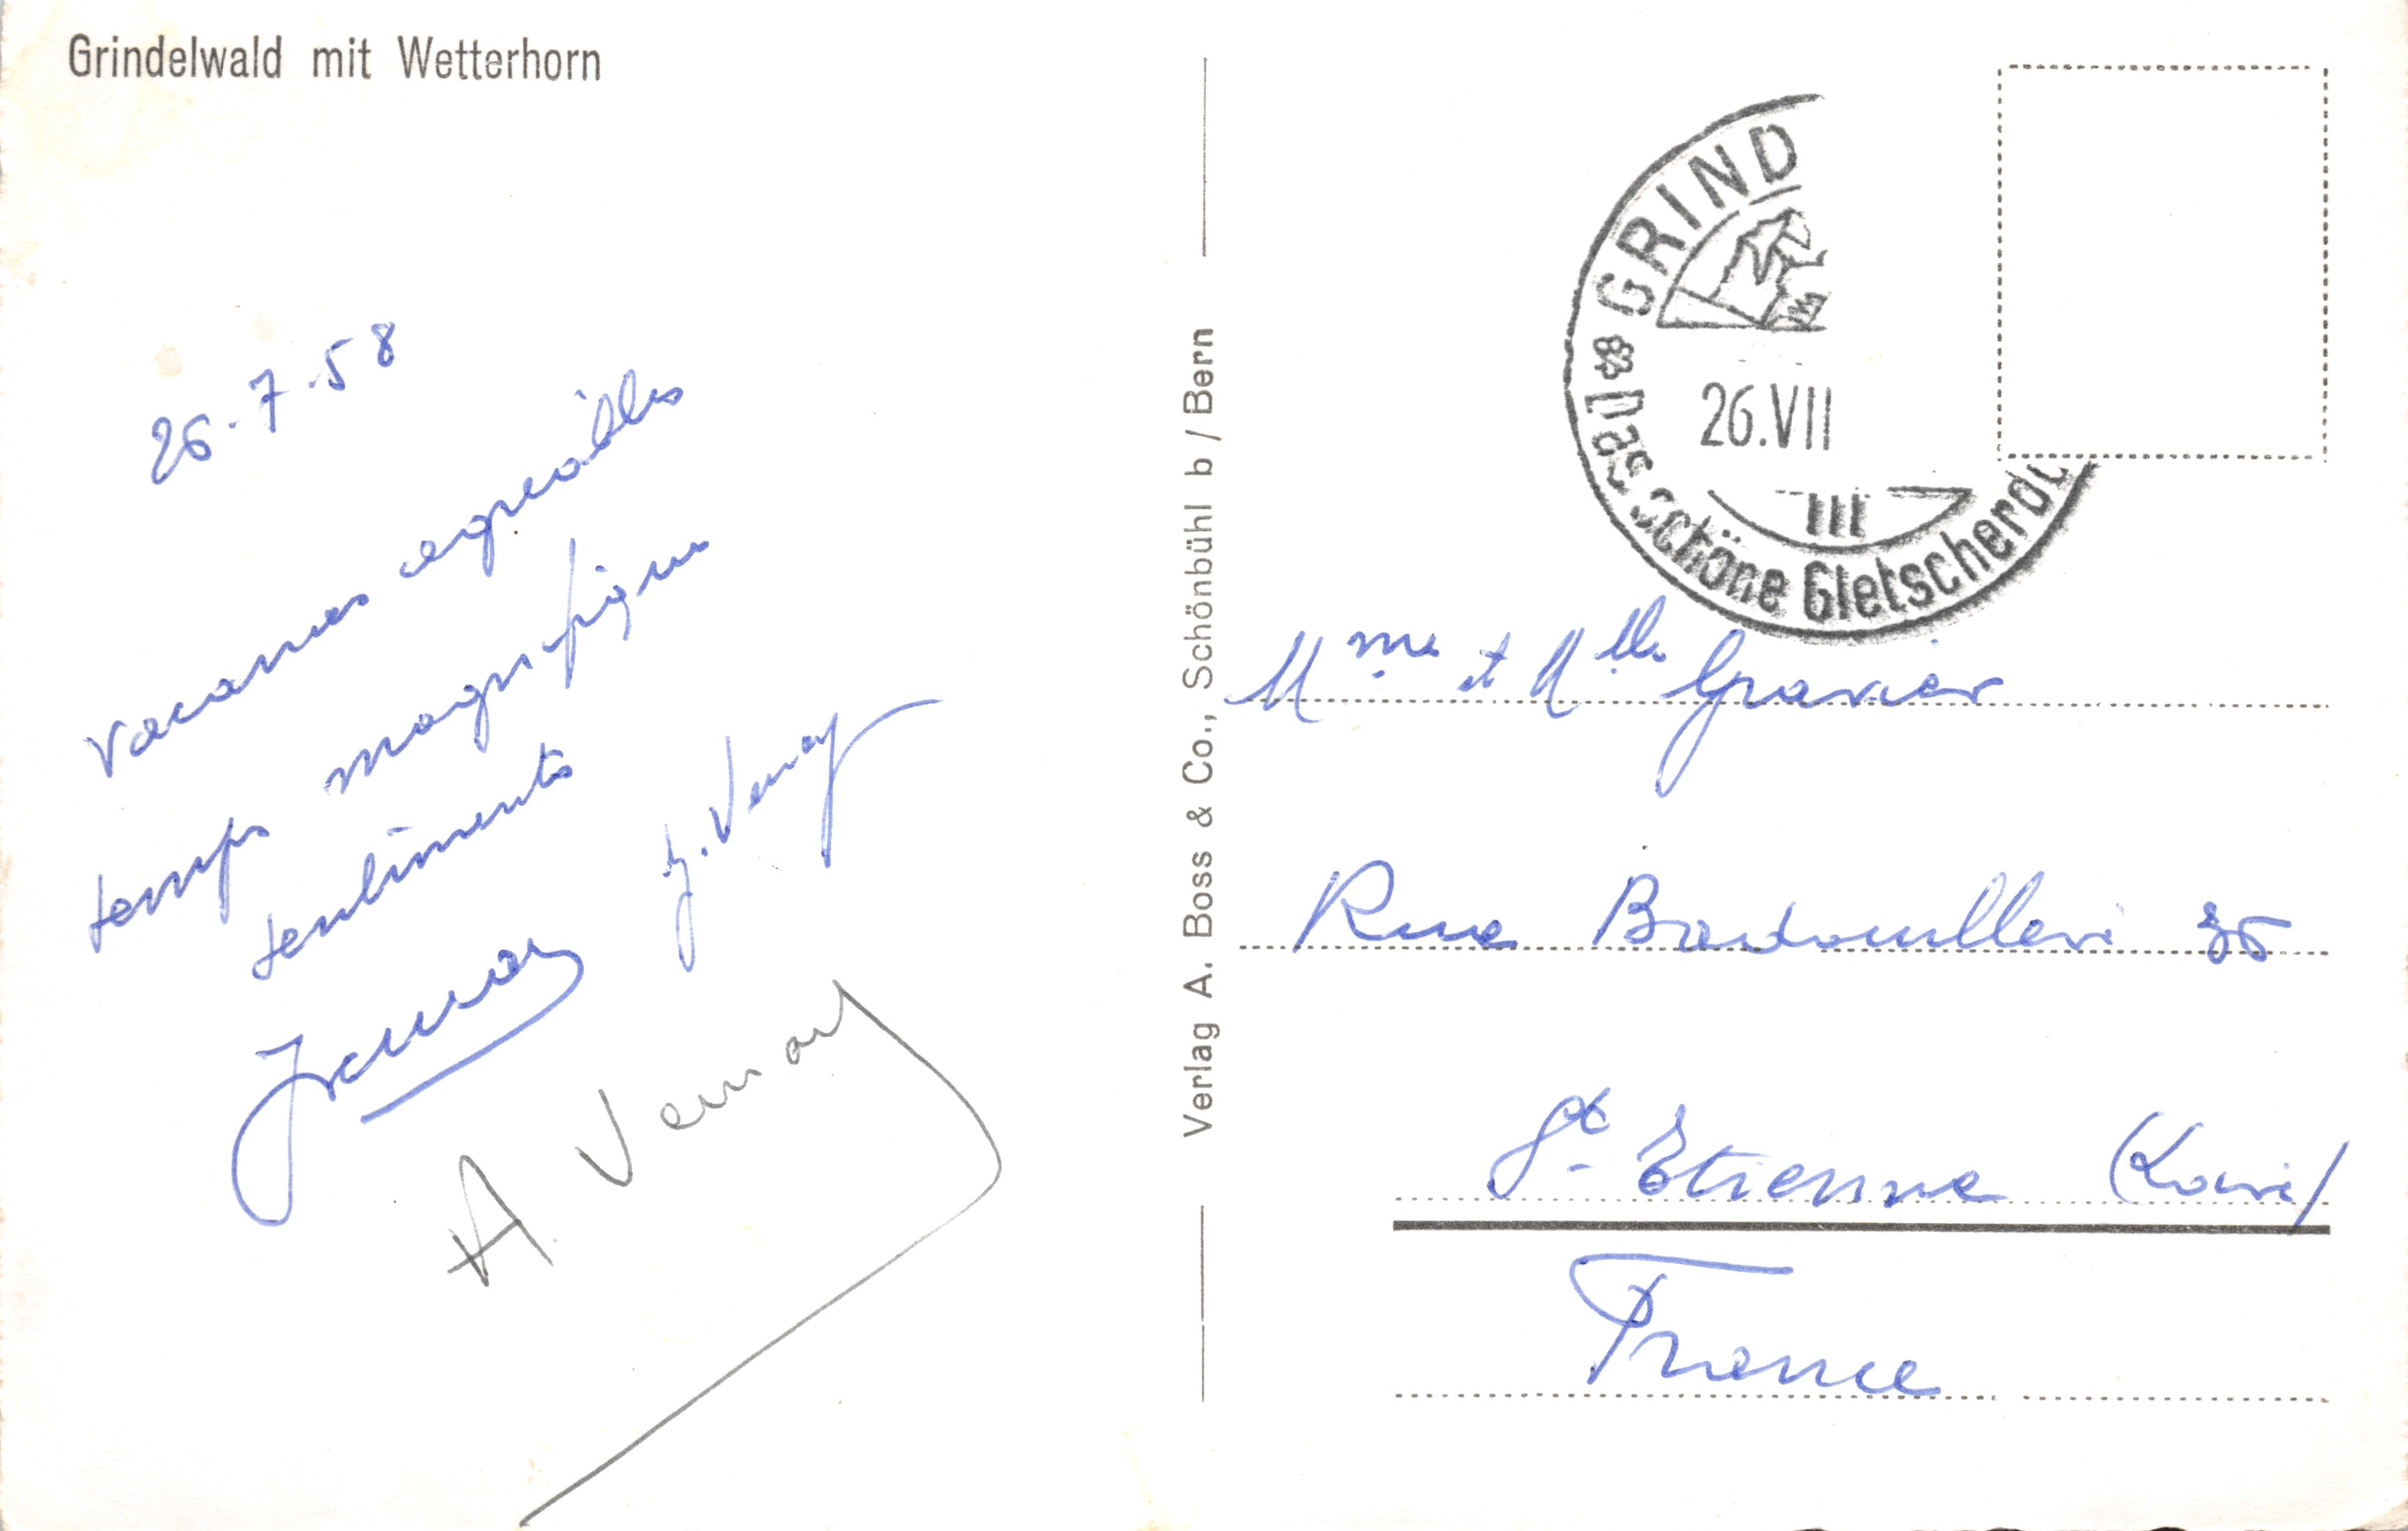 Grindelwald mit Wetterhorn
26.7.58
Vacances agréables
temps magnifique
sentiments
J. Vernay
A Vernay
Verlag A. Boss & Co., Schönbühl b / Bern
GRIND
26.VII
III
das schöne Gletscherd
Mme et Mlle Gravier
Rue Badouillère 35
St Etienne (Loire)
France